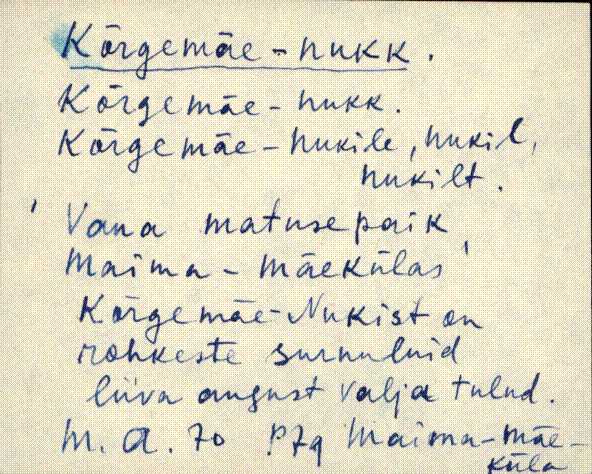 Kõrgemäe-nukk.
Kõrgemäe-nukk.
Kõrgemäe-nukile, nukil,
nukilt.
' Vana matusepaik
Maima-mäekülas '
Kõrgemäe-Nukist on
rohkeste surnuluid
liiva august valja tulnd.
M. A. 70 Maima-mäe-
küla